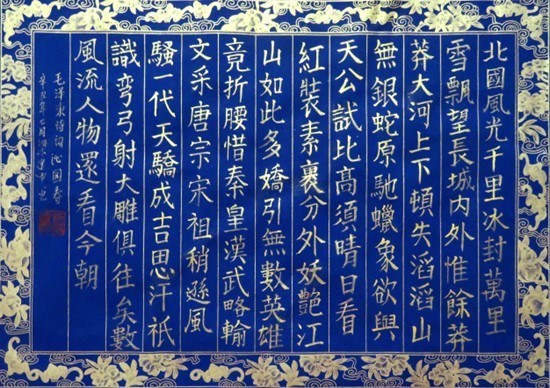 北國風光千里冰封萬里
雪飄望長城內外惟餘莽
莽大河上下頓失滔滔山
無銀蛇原馳蠟象欲與
天公試比高須晴日看
紅裝素裹分外妖艷江
山如此多嬌引無數英雄
竟折腰惜秦皇漢武略輸
文采唐宗宋祖稍遜風
騷一代天驕成吉思汗祇
識彎弓射大雕俱往矣數
風流人物還看今朝
毛澤東詩詞沁園春
年七月